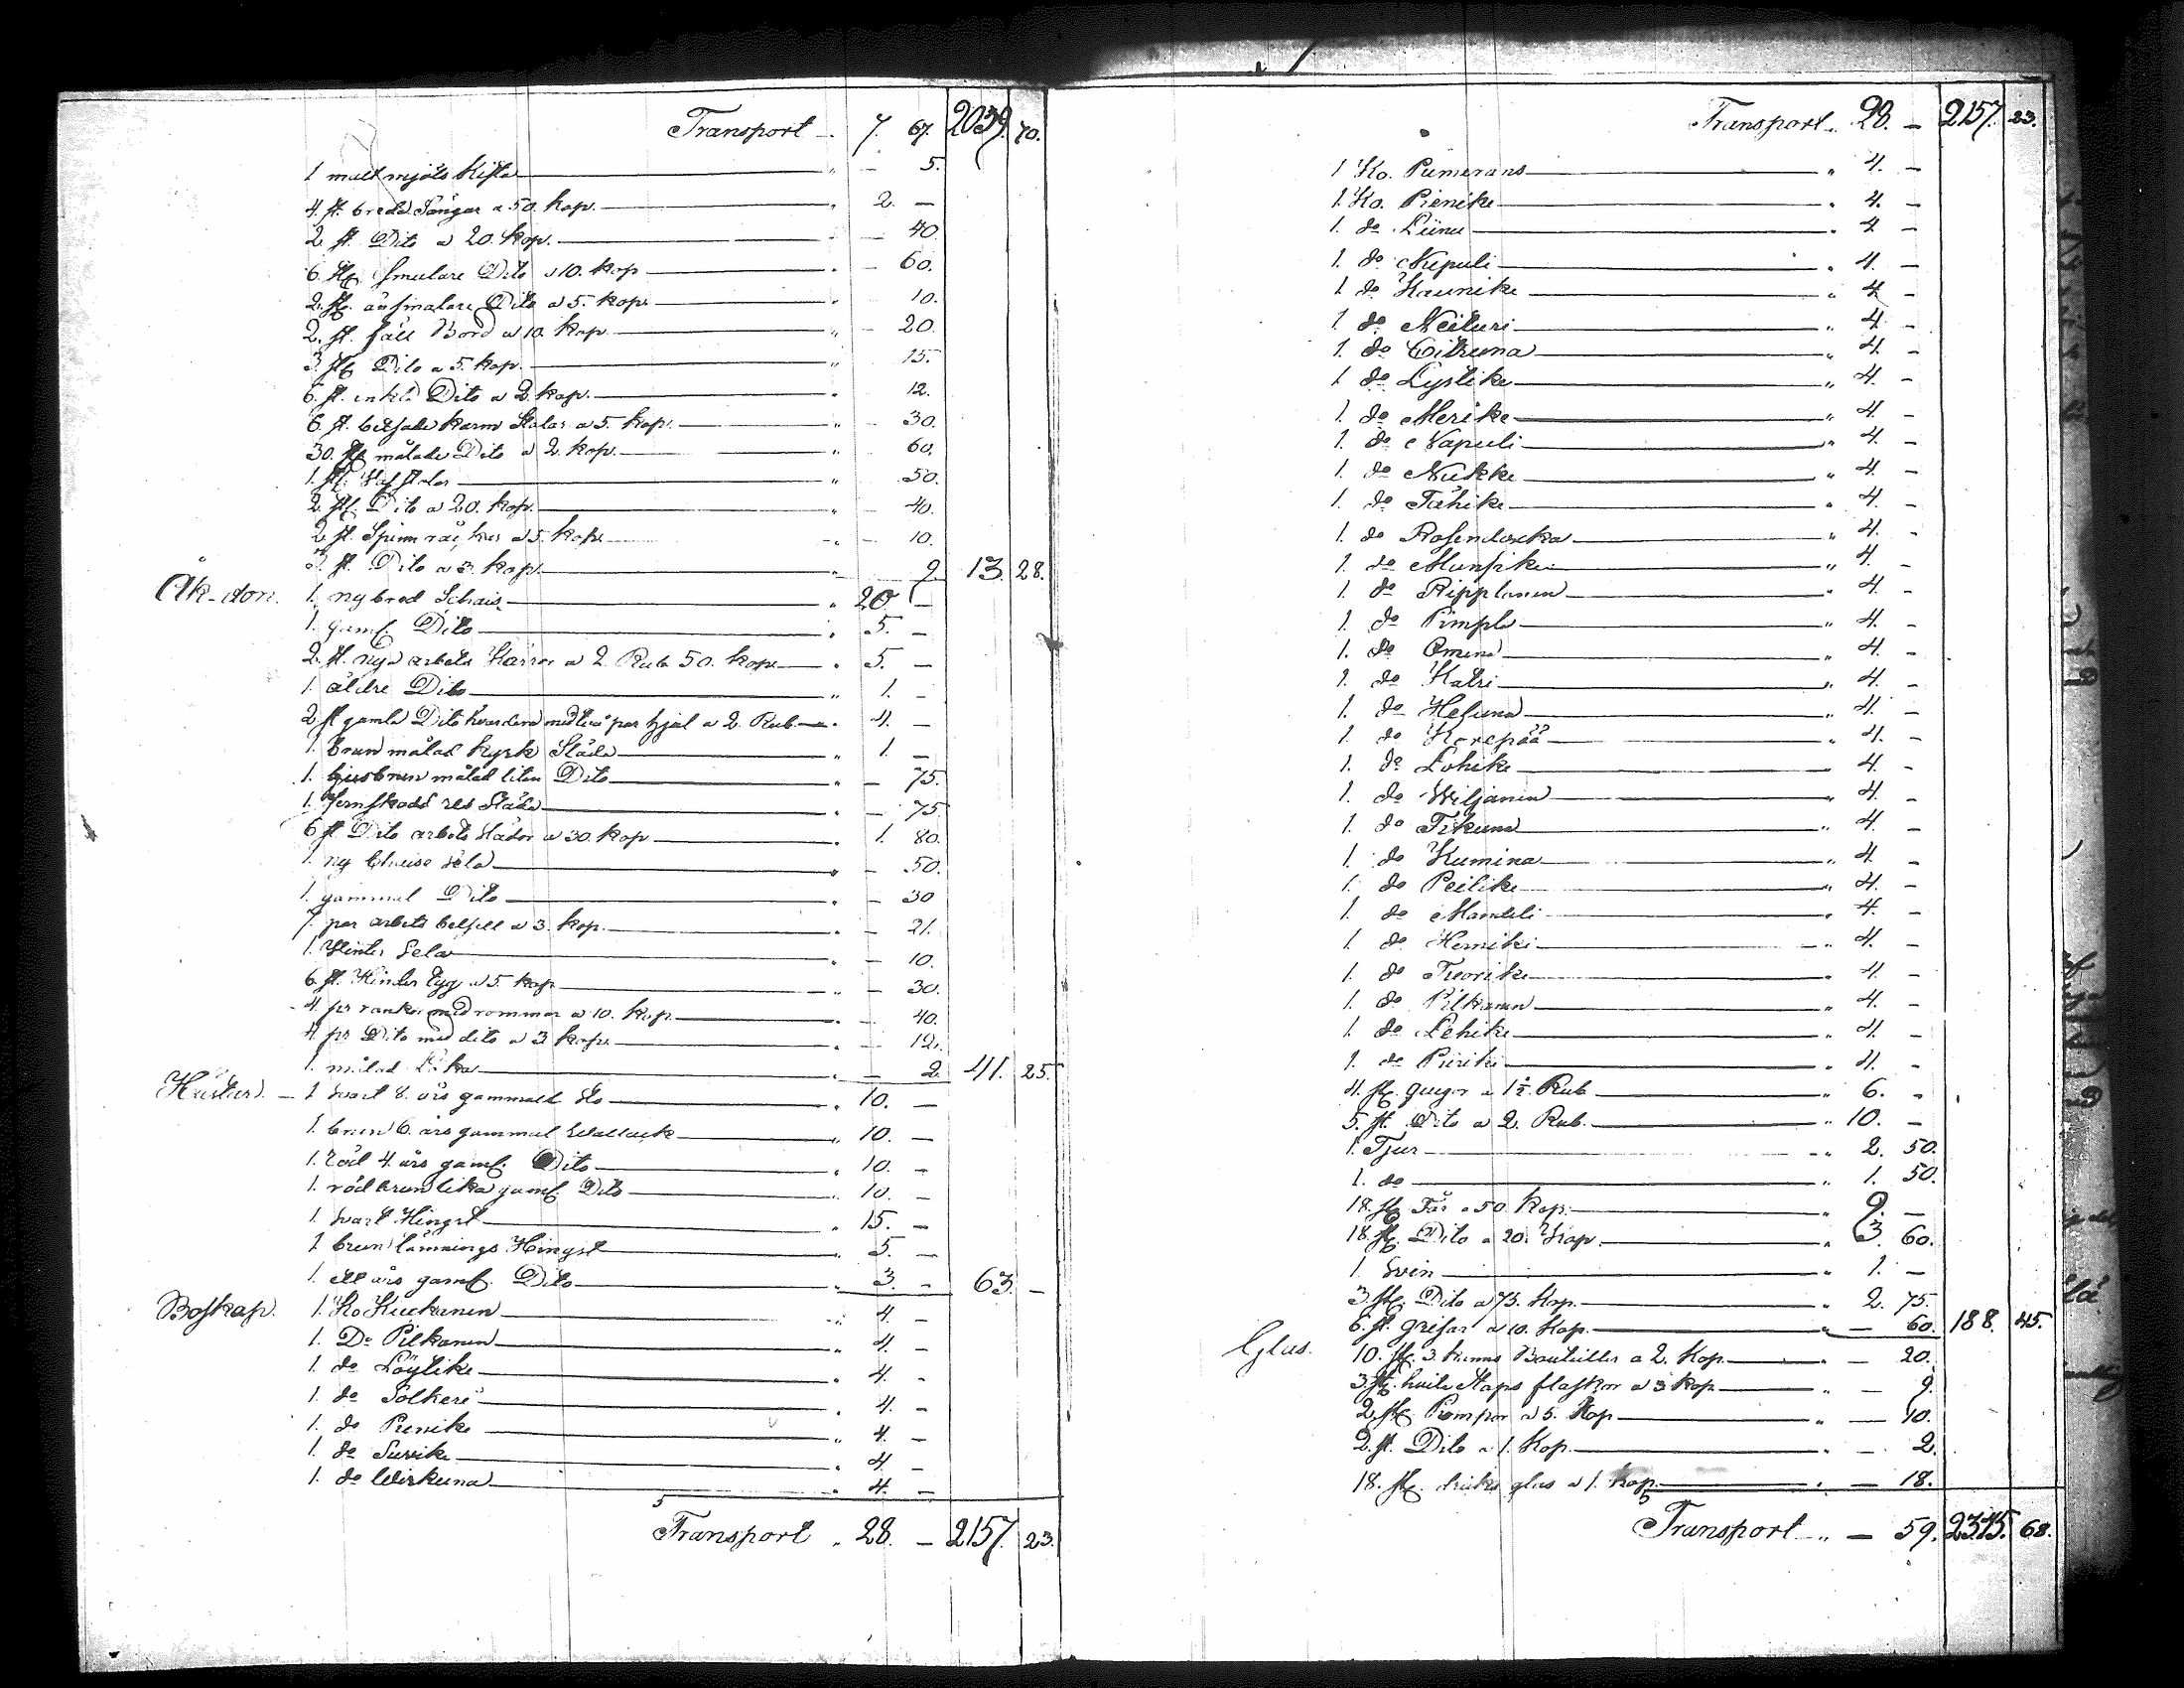 Transport .. 7. 67. 2039. 70.
1 malt mjöls Kista " — 5.
4. st. breda Sängar a 50. kop. " 2. —
2. st. Dito a 20. kop. " — 40.
6. st. smalare Dito a 10. kop " — 60.
2. st. än smalare Dito a 5. kop. " — 10.
2. st. fäll Bord a 10. kop. " — 20.
3. st. Dito a 5. kop. " — 15.
6. st. enkla Dito a 2. kop. " 12.
6. st. karm Stolar a 5. kop. " — 30.
30. st. målade Dito a 2. kop. " 60.
1. st. " 50.
2. st. Dito a 20. kop. " — 40.
2. st. Spinn råckar a 5. kop. " 10.
3. st. Dito a 3. kop. " 9. 13. 28.
Åk-don. 1. ny bred Schais " 20 —
1. gaml. Dito " 5. —
2. st. nya arbets Kärror a 2. Rub. 50. kop. " 5. —
1. äldre Dito " 1. —
2. st gamla Dito hvardera med två par hjul a 2. Rub. " 4. —
1. brun målad kyrk Släda " 1. —
1. ljusbrun målad liten Dito " — 75.
1. Jernskodd res Släda " — 75.
6. st. Dito arbets Slädor a 30. kop " 1. 80.
1. ny Chaise Sela " — 50.
1. gammal Dito " — 30
7. par arbets a 3. kop. " — 21.
1. Sela " — 10.
6. st. tyg a 5. kop " — 30.
4. pr rankor med rommor a 10. kop. " — 40.
4. pr Dito med dito a 3 kop. " — 12.
1. målad " — 2. 41. 25.
Hästar. — 1 svart 8. års gammalt Sto " 10. —
1. brun 6. års gammal Wallack " 10. —
1. röd 4. års gaml. Dito " 10. —
1. röd brun lika gaml. Dito " 10. —
1. Svart Hingst " 15. —
1 brun lämnings Hingst " 5. —
1. ett års gaml. Dito " 3. — 63. —
Boskap. 1. Ko Kuckanen " 4. —
1. Do Pilkanen " 4. —
1. do Löytike " 4. —
1. do Solkeri " 4. —
1. do Pienike " 4. —
1. do Surike " 4. —
1. do Wirkuna " 4. —
Transport " 28. — 2157. 23.
Transport .. 28. — 2157. 23.
1 Ko. Pumerans " 4. —
1. Ko. Pienike " 4. —
1. do Liinu " 4 —
1. do Nepuli " 4. —
1. do Kaunike " 4 —
1. do Neituri " 4 —
1. do Citruna " 4. —
1. do Lystike " 4. —
1. do Merike " 4. —
1. do Napuli " 4. —
1. do Nukke " 4. —
1. do Tähike " 4. —
1. do Rosendorka " 4. —
1. do Mansike " 4. —
1. do Ripplanen " 4. —
1. do Pimplo " 4. —
1. do Omena " 4. —
1. do Katri " 4. —
1. do Heluna " 4. —
1. do Korepää " 4. —
1. do Lohike " 4. —
1. do Wiljanen " 4. —
1. do Tirkuna " 4. —
1. do Kumina " 4. —
1. do Peilike " 4. —
1. do Mandeli " 4. —
1. do Hemiki " 4. —
1. do Tuorike " 4. —
1. do Pilkanen " 4. —
1. do Lehike " 4. —
1. do Piiriki " 4. —
4. st. qwigor a 1 1/2 Rub " 6. —
5. st. Dito a 2. Rub. " 10. —
1. Tjur " 2. 50.
1. do " 1. 50.
18. st. Får a 50. kop. " 9. —
18. st. Dito a 20. Kop. " 3. 60.
1. Svin " 1. —
3. st. Dito a 75. Kop. " 2. 75.
6. st. grisar a 10. Kop. " — 60. 188. 45.
Glas. 10. st. 3. kanns Bouteiller a 2. Kop. " — 20.
3. st. hvita Stops flaskor a 3 kop. " — 9.
2. st. Pompor a 5. Kop " — 10.
2. st. Dito a 1. Kop. " — 2.
18. st. dricks glas a 1. kop. " — 18.
Transport .. — 59. 2345. 68.